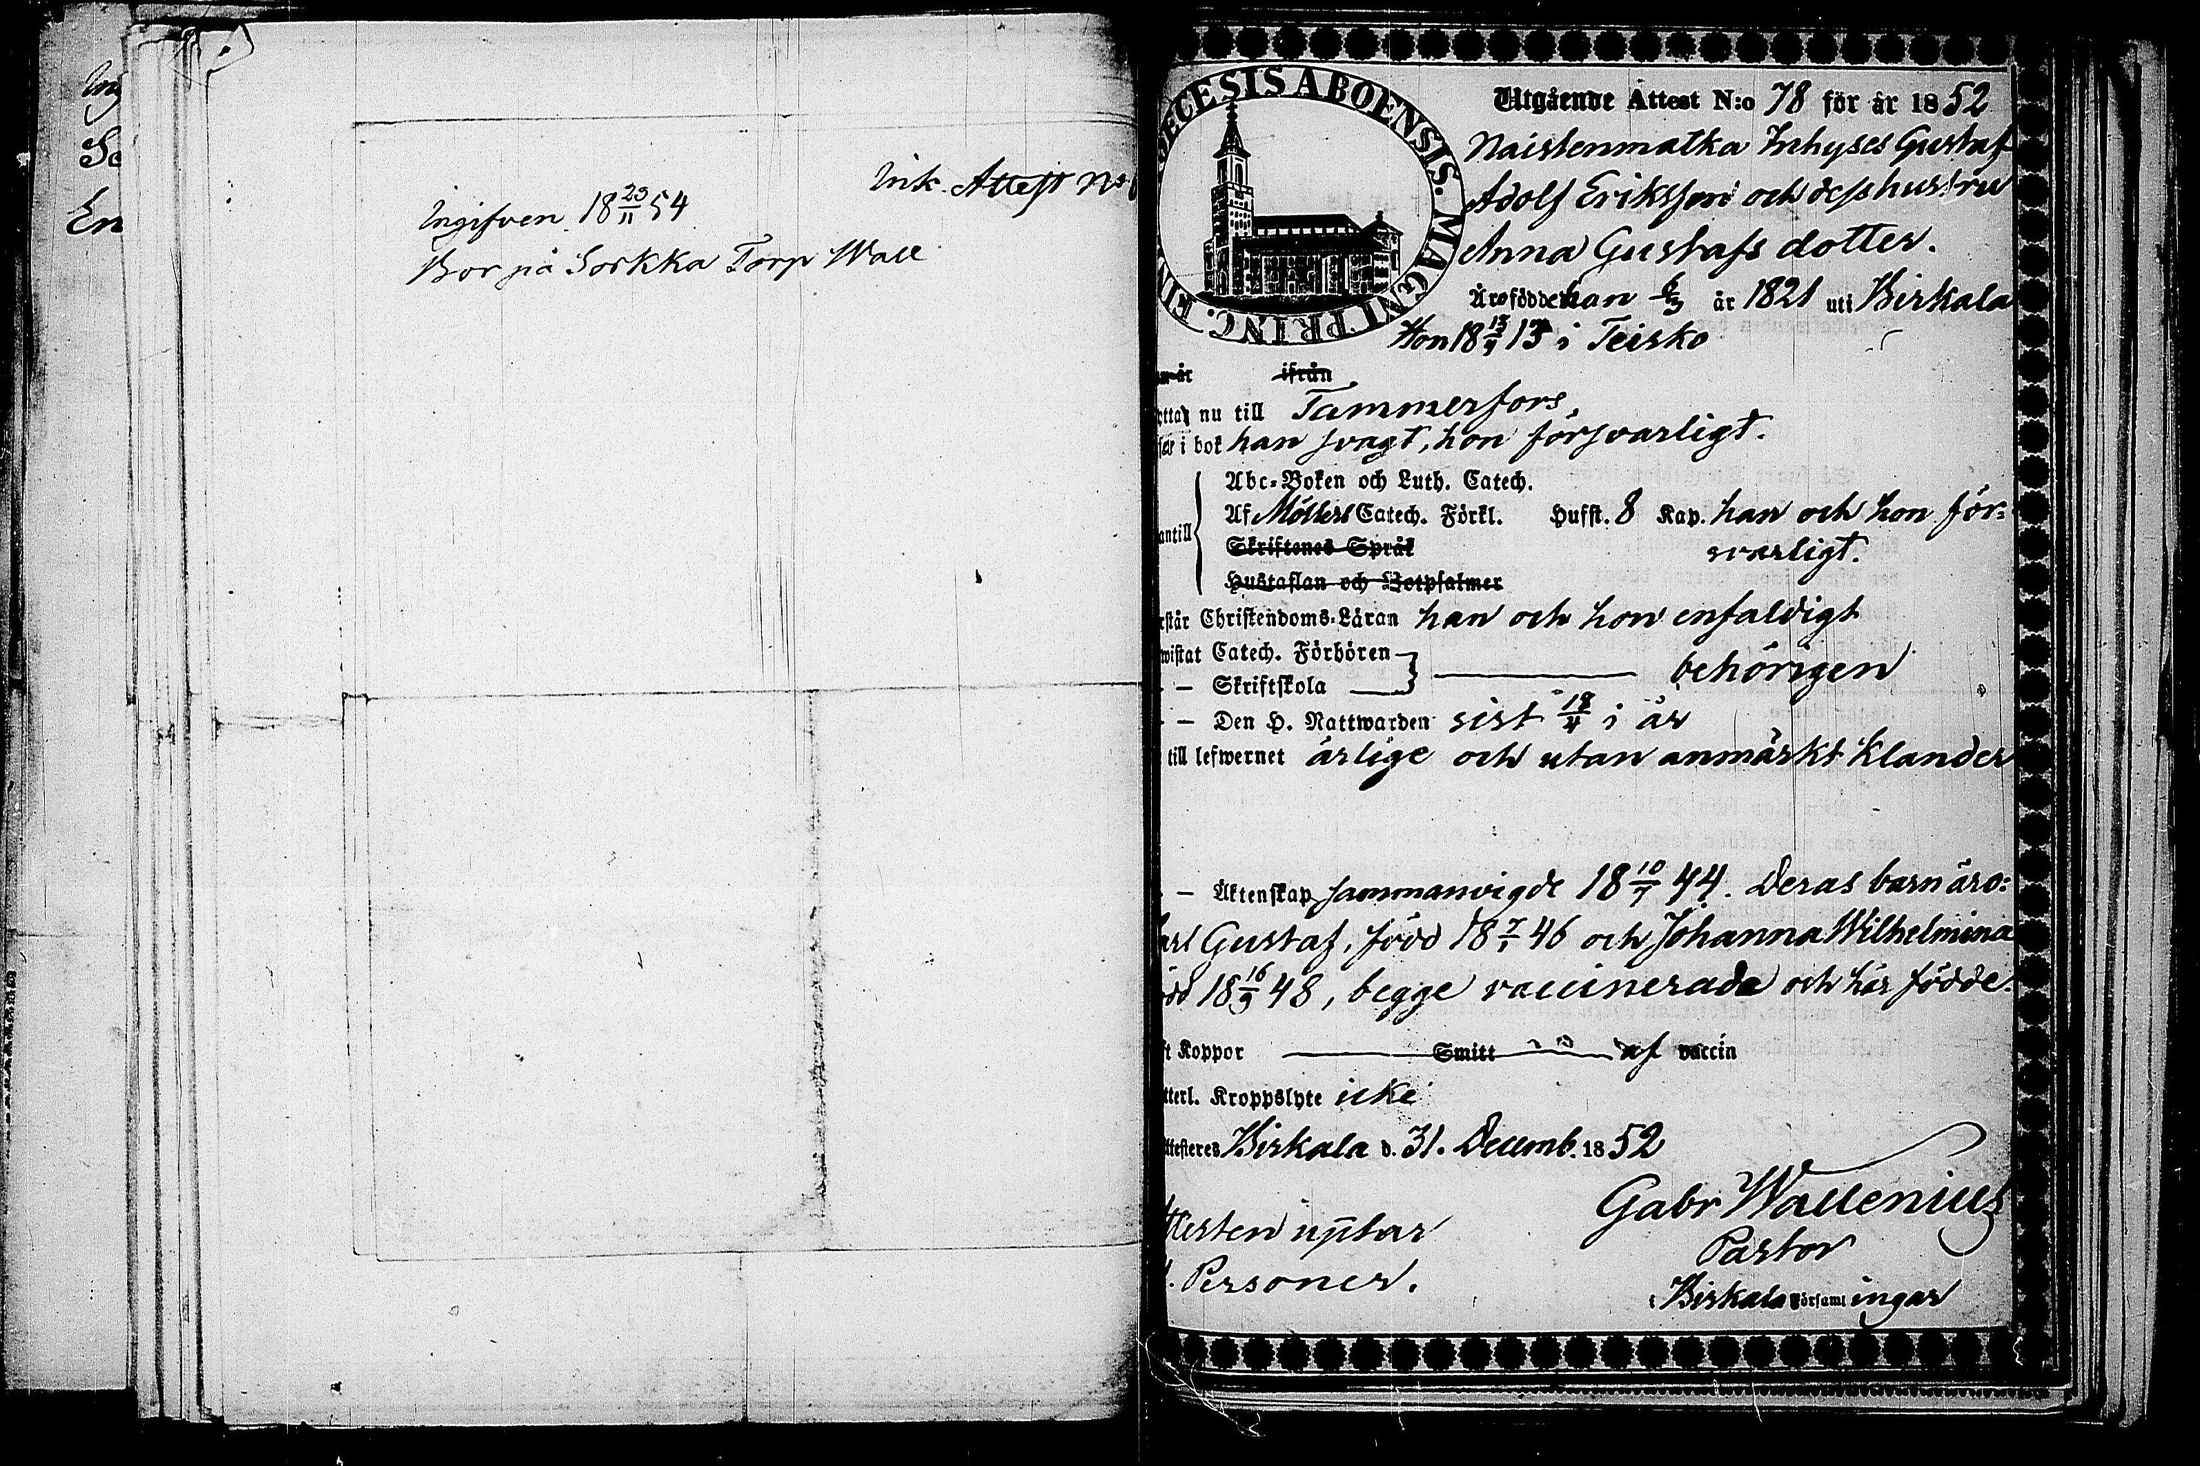 Ink. Attest No
Ingifven 18 23/11 54
Bor på Sorkka Torp Wall
ECESIS ABOENSIS. MAGNI PRINC. FIN
Utgående Attest N:o 78 för år 1852
Naistenmatka Inhyses Gustaf
Adolf Eriksson och dess hustru
Anna Gustafs dotter.
Äro födde han 6/3 år 1821 uti Birkala
Hon 18 13/9 13 i Teisko
år ifrån
nu till Tammerfors
i bok han svagt, hon försvarligt.
Abc-Boken och Luth. Catech.
Af Möllers Catech. Förkl. Husst. 8 Kap. han och hon för=
antill
Skriftenes Språk svarligt.
Hustaflan och Botpsalmer
rstår Christendoms-Läran han och hon enfaldigt
wistat Catech. Förhören
behörigen
— Skriftskola
— Den H. Nattwarden sist 18/4 i år
till lefwernet ärlige och utan anmärkt klander
— Äktenskap sammanvigde 18 10/7 44. Deras barn äro:
arl Gustaf, född 18 7/1 46 och Johanna Wilhelmina
ödd 18 16/9 48, begge vaccinerade och här födde.
ft Koppor Smitt af vaccin
tterl. Kroppslyte icke
ttesteres Birkala d. 31. Decemb. 1852
Gabr Wallenius
ttesten uptar
Pastor
. Personer.
i Birkala Församl ingar